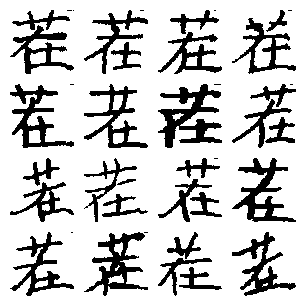 茬茬茬茬
茬茬茬茬
茬茬茬茬
茬茬茬茬